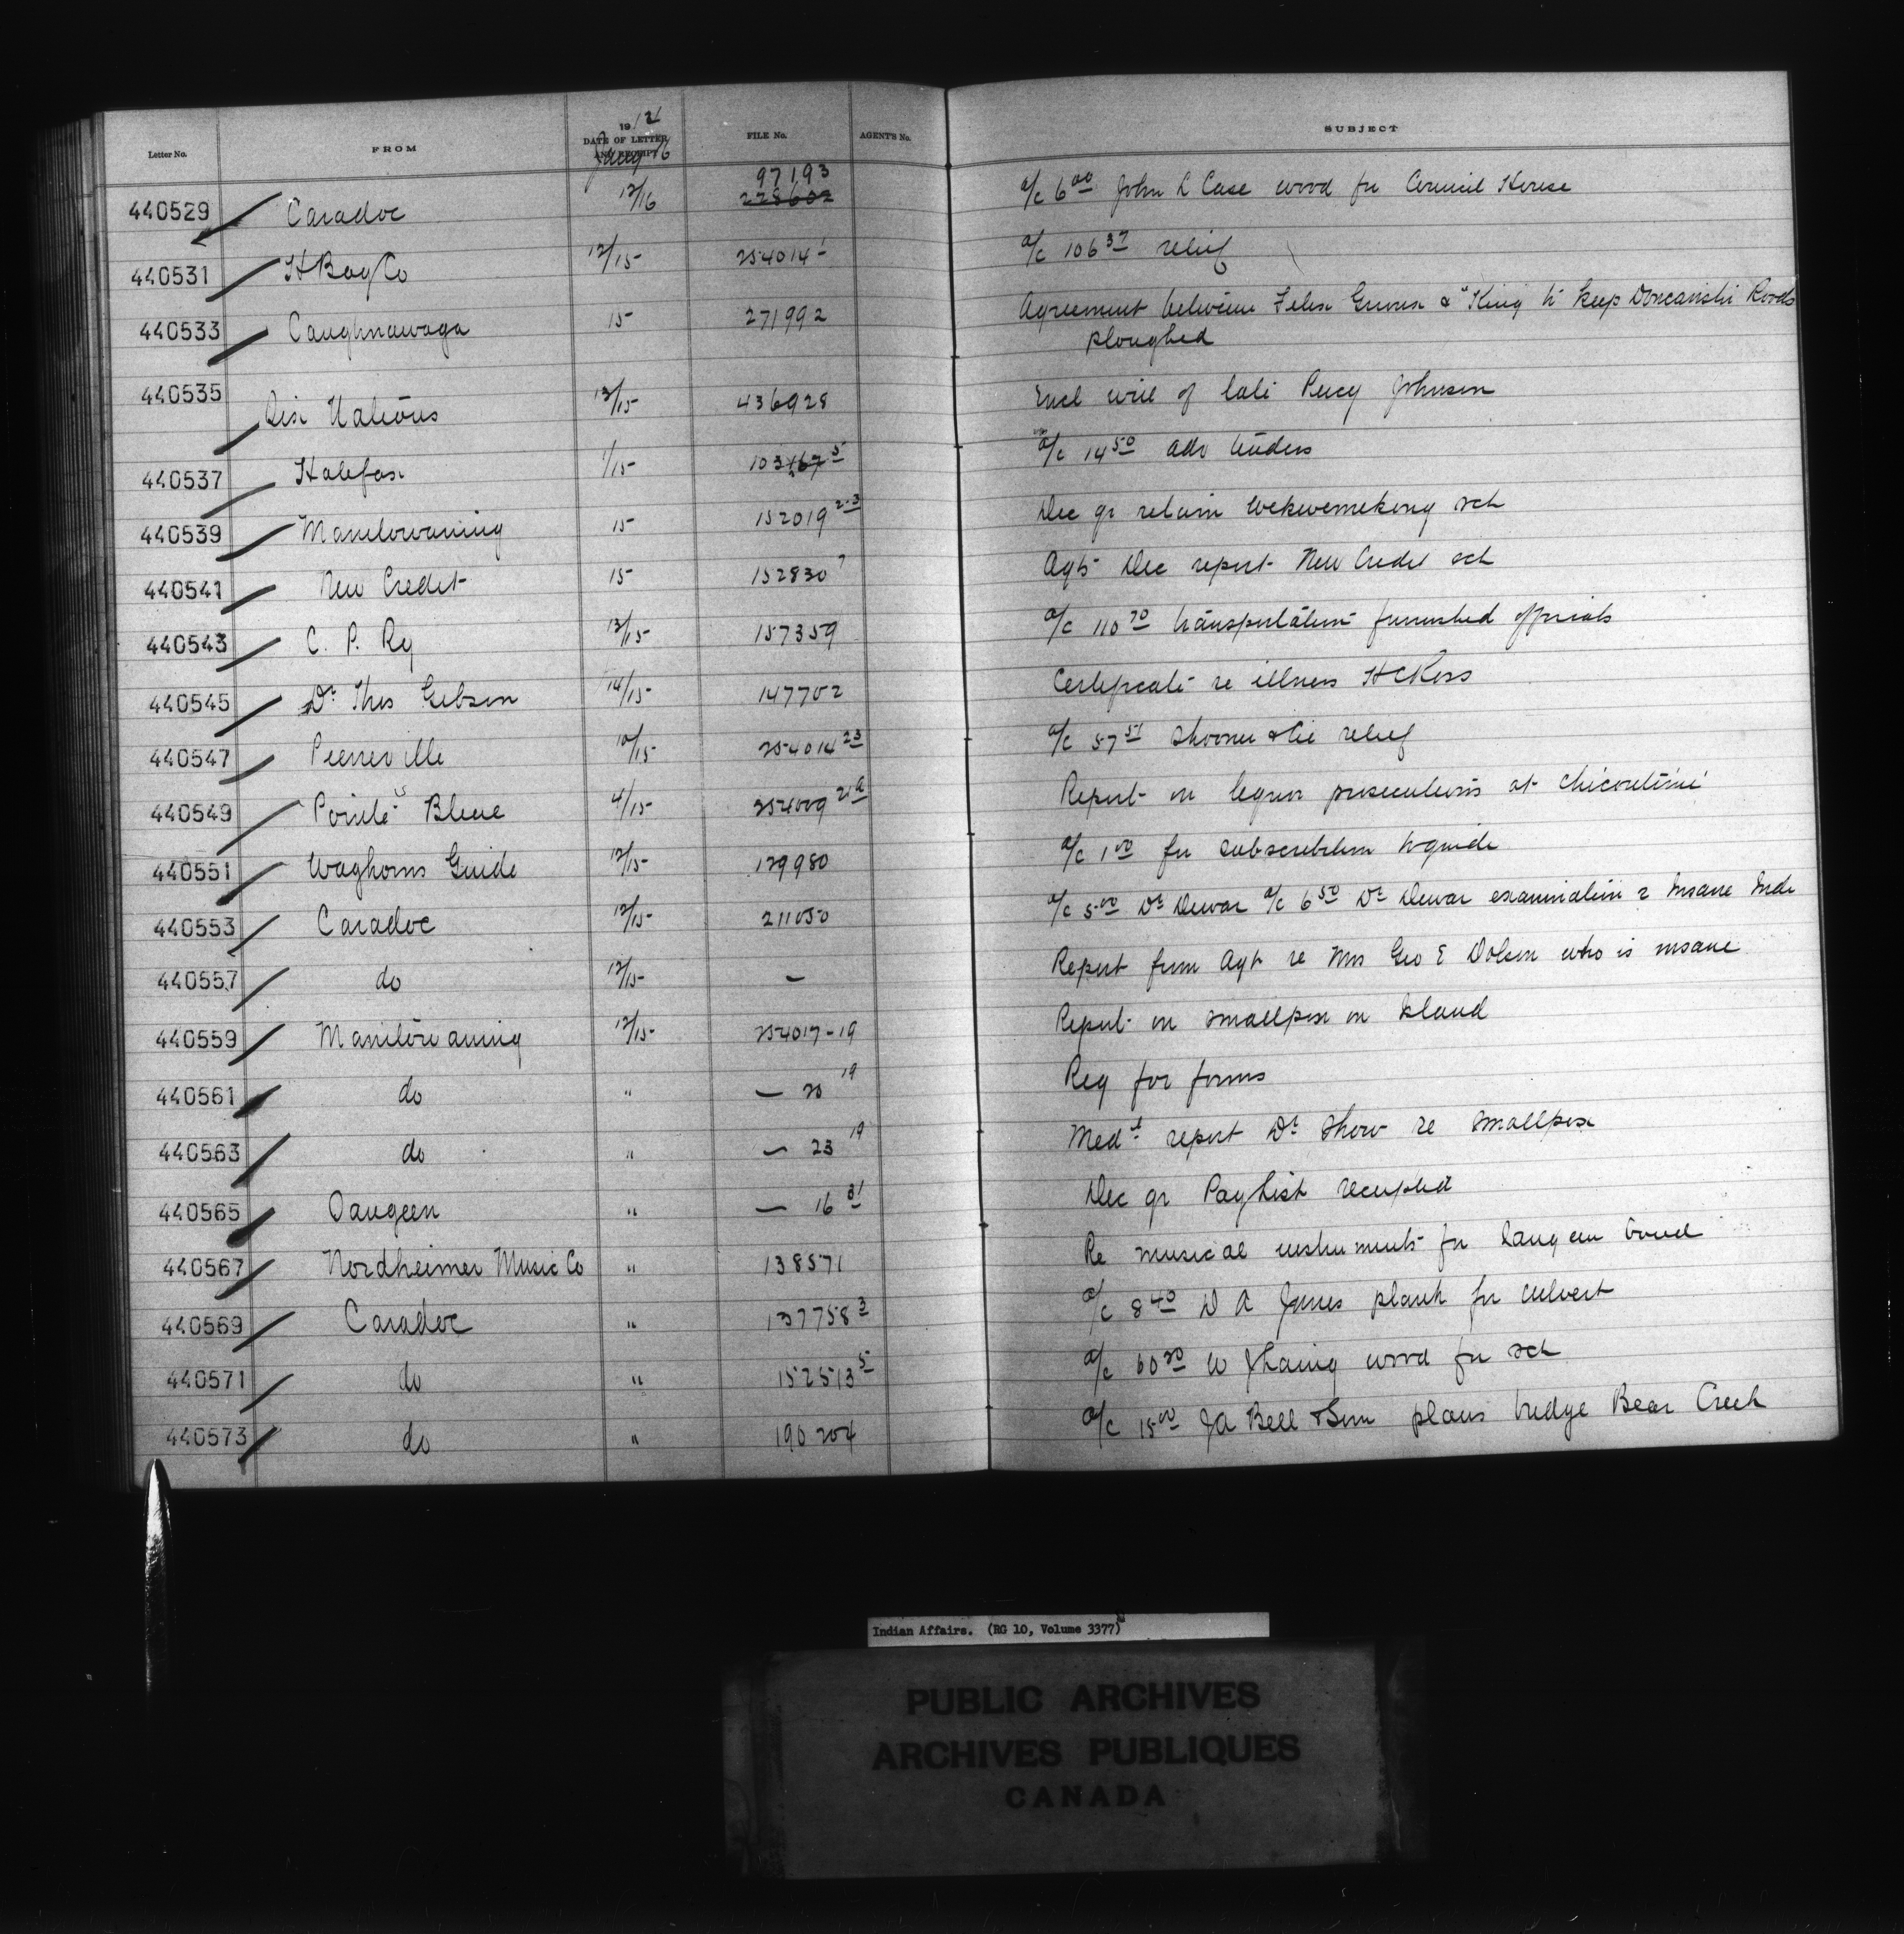 Letter No. FROM 1912 DATE OF LETTER AND RECEIPT FILE No. AGENT'S No. SUBJECT
Jany 16
97193
440529 Caradoc 12/16 228602 a/c 6 00 John L Case wood for Council House
440531 H Bay Co 12/15 254014 1 a/c 106 37 relief
440533 Caughnawaga 15 271992 Agreement between & "King to keep Roads
ploughed
440535 Six Nations 13/15 436928 Encl will of late Percy Johnson
440537 Halifax 1/15 103 5 a/c 14 50 adv tenders
440539 Manitowaning 15 152019 2-3 Dec qr return Wekwemekong sch
440541 New Credit 15 152830 7 Agts Dec report New Credit sch
440543 C. P. Ry 13/15 157359 a/c 110 70 transportation furnished officials
440545 Dr Thos Gibson 14/15 147702 Certificate re illness H C Ross
440547 Pierreville 10/15 254014 23 a/c 57 51 Shooner & Cie relief
440549 Pointe Bleue 4/15 254009 21A Report on liquor prosecutions at Chicoutimi
440551 Waghorns Guide 12/15 129980 a/c 1 00 for subscription to guide
440553 Caradoc 12/15 211050 a/c 5 00 Dr Dewar a/c 6 50 Dr Dewar examination 2 Insane Inds
440557 do 12/15 — Report from Agt re Mrs Geo E Dolson who is insane
440559 Manitowaning 12/15 254017-19 Report on smallpox on Island
440561 do " — 20 19 Req for forms
440563 do " — 23 19 Medl report Dr Shaw re smallpox
440565 Saugeen " — 16 31 Dec qr Pay List receipted
440567 Nordheimer Music Co " 138571 Re musical instruments for Saugeen band
440569 Caradoc " 137758 3 a/c 8 40 D A Jones plank for culvert
440571 do " 152513 5 a/c 60 20 W wood for sch
440573 do " 190204 a/c 15 00 J A Bell & Son plans bridge Bear Creek
Indian Affairs. (RG 10, Volume 3377)
PUBLIC ARCHIVES
ARCHIVES PUBLIQUES
CANADA